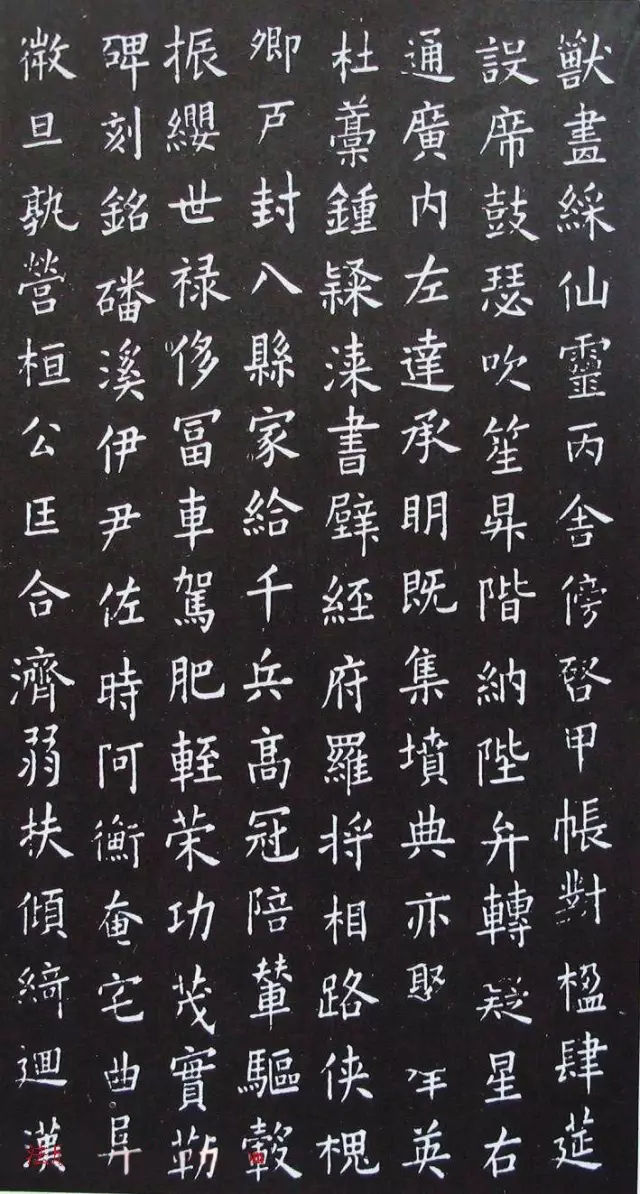 獸畫綵仙靈丙舍傍啓甲帳對楹肆筵
設席鼓瑟吹笙昇階納陛弁轉疑星右
通廣内左達承明既集墳典亦聚英
杜藁鍾隸漆書壁經府羅将相路俠槐
卿戶封八縣家給千兵高冠陪輦驅轂
振纓世禄侈冨車駕肥輕荣功茂實勒
碑刻銘磻溪伊尹佐時阿衡奄宅曲阜
微旦孰營桓公匡合濟弱扶傾綺迴漢